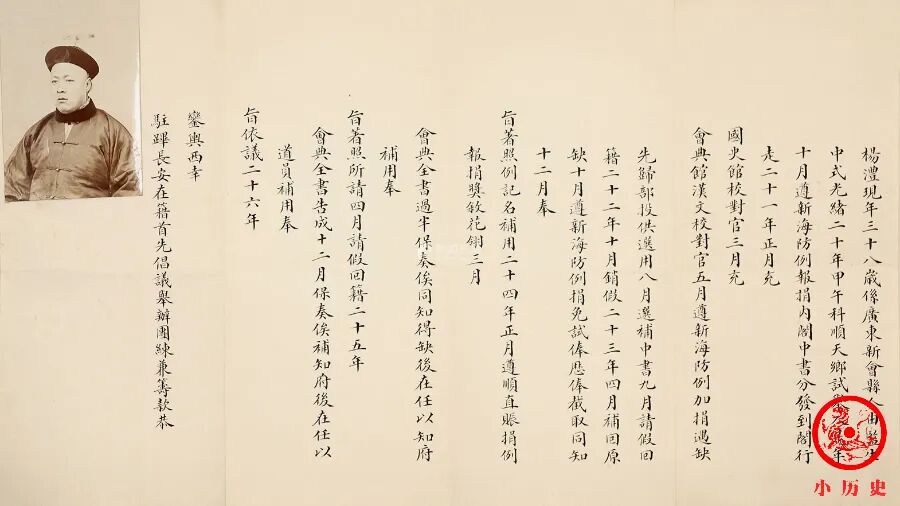 楊澧現年三十八歲係廣東新會縣人由監生
中式光緒二十年甲午科順天鄉試年
十月遵新海防例報捐內閣中書分發到閣行
走二十一年正月充
國史館校對官三月充
會典館漢文校對官五月遵新海防例加捐遇缺
先歸部投供選用八月選補中書九月請假回
籍二十二年十月銷假二十三年四月補回原
缺十月遵新海防例捐免試俸歷俸截取同知
十二月奉
旨著照例記名補用二十四年正月遵順直賑捐例
報捐獎敘花翎三月
會典全書過半保奏俟同知得缺後在任以知府
補用奉
旨著照所請四月請假回籍二十五年
會典全書告成十二月保奏俟補知府後在任以
道員補用奉
旨依議二十六年
鑾輿西幸
駐蹕長安在籍首先倡議舉辦團練兼籌款恭
小历史